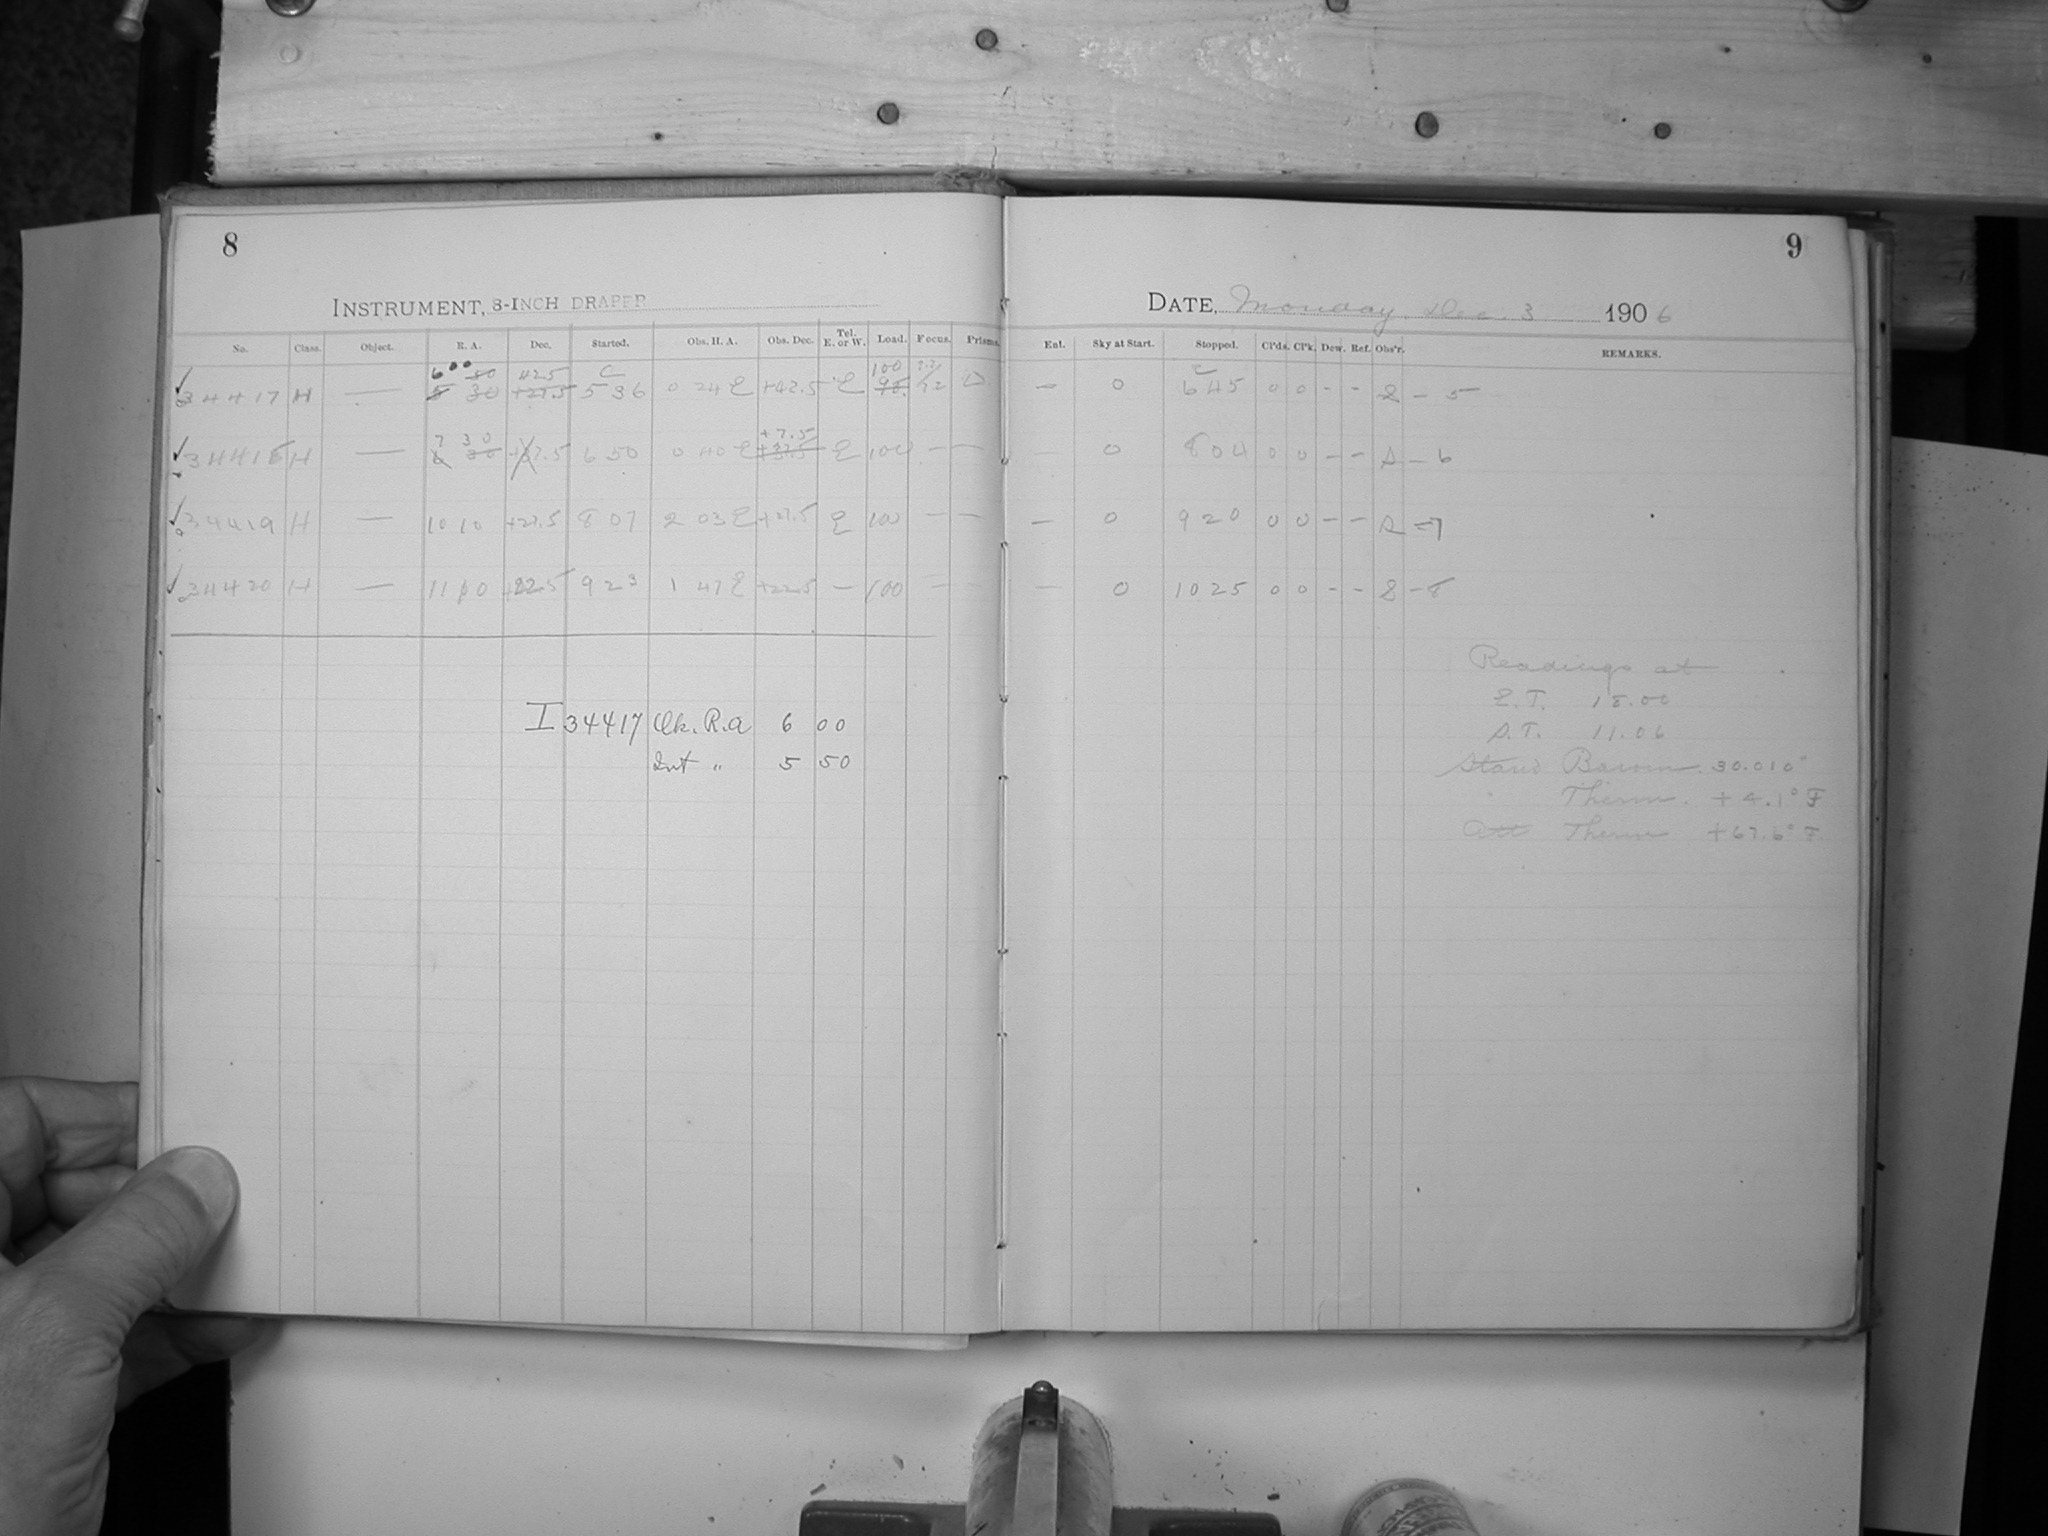 8
INSTRUMENT, 8-INCH DRAPER
No. Class. Object. R. A. Dec. Started. Obs. H. A. Obs. Dec. Tel. E. or W. Load. Focus. Prisms.
6 00 50 42.5 C 100
34417 H — 5 30 +27.5 5 36 0 24 E +42.5 E 12
7 30 +7.5
34418 H — 6 30 6 50 0 40 E E 100 — —
34419 H — 10 10 +27.5 8 07 2 03 E +27.5 E 100 — —
34420 H — 11 10 +22.5 9 23 1 47 E +22.5 — 100 — —
I 34417 Ok. R.A 6 00
Int " 5 50
9
DATE, Monday, Dec. 3 1906
Ent. Sky at Start. Stopped. Cl'ds. Cl'k. Dew. Ref. Obs'r. REMARKS.
— 0 6 45 0 0 - - — 5
0 8 04 0 0 - - — 6
— 0 9 20 0 0 - - — 7
— 0 10 25 0 0 - - — 8
Readings at
E.T. 18.00
S.T. 11.06
Stand Barom. 30.010"
Therm. +4.1° F
Att Therm +67.6° F